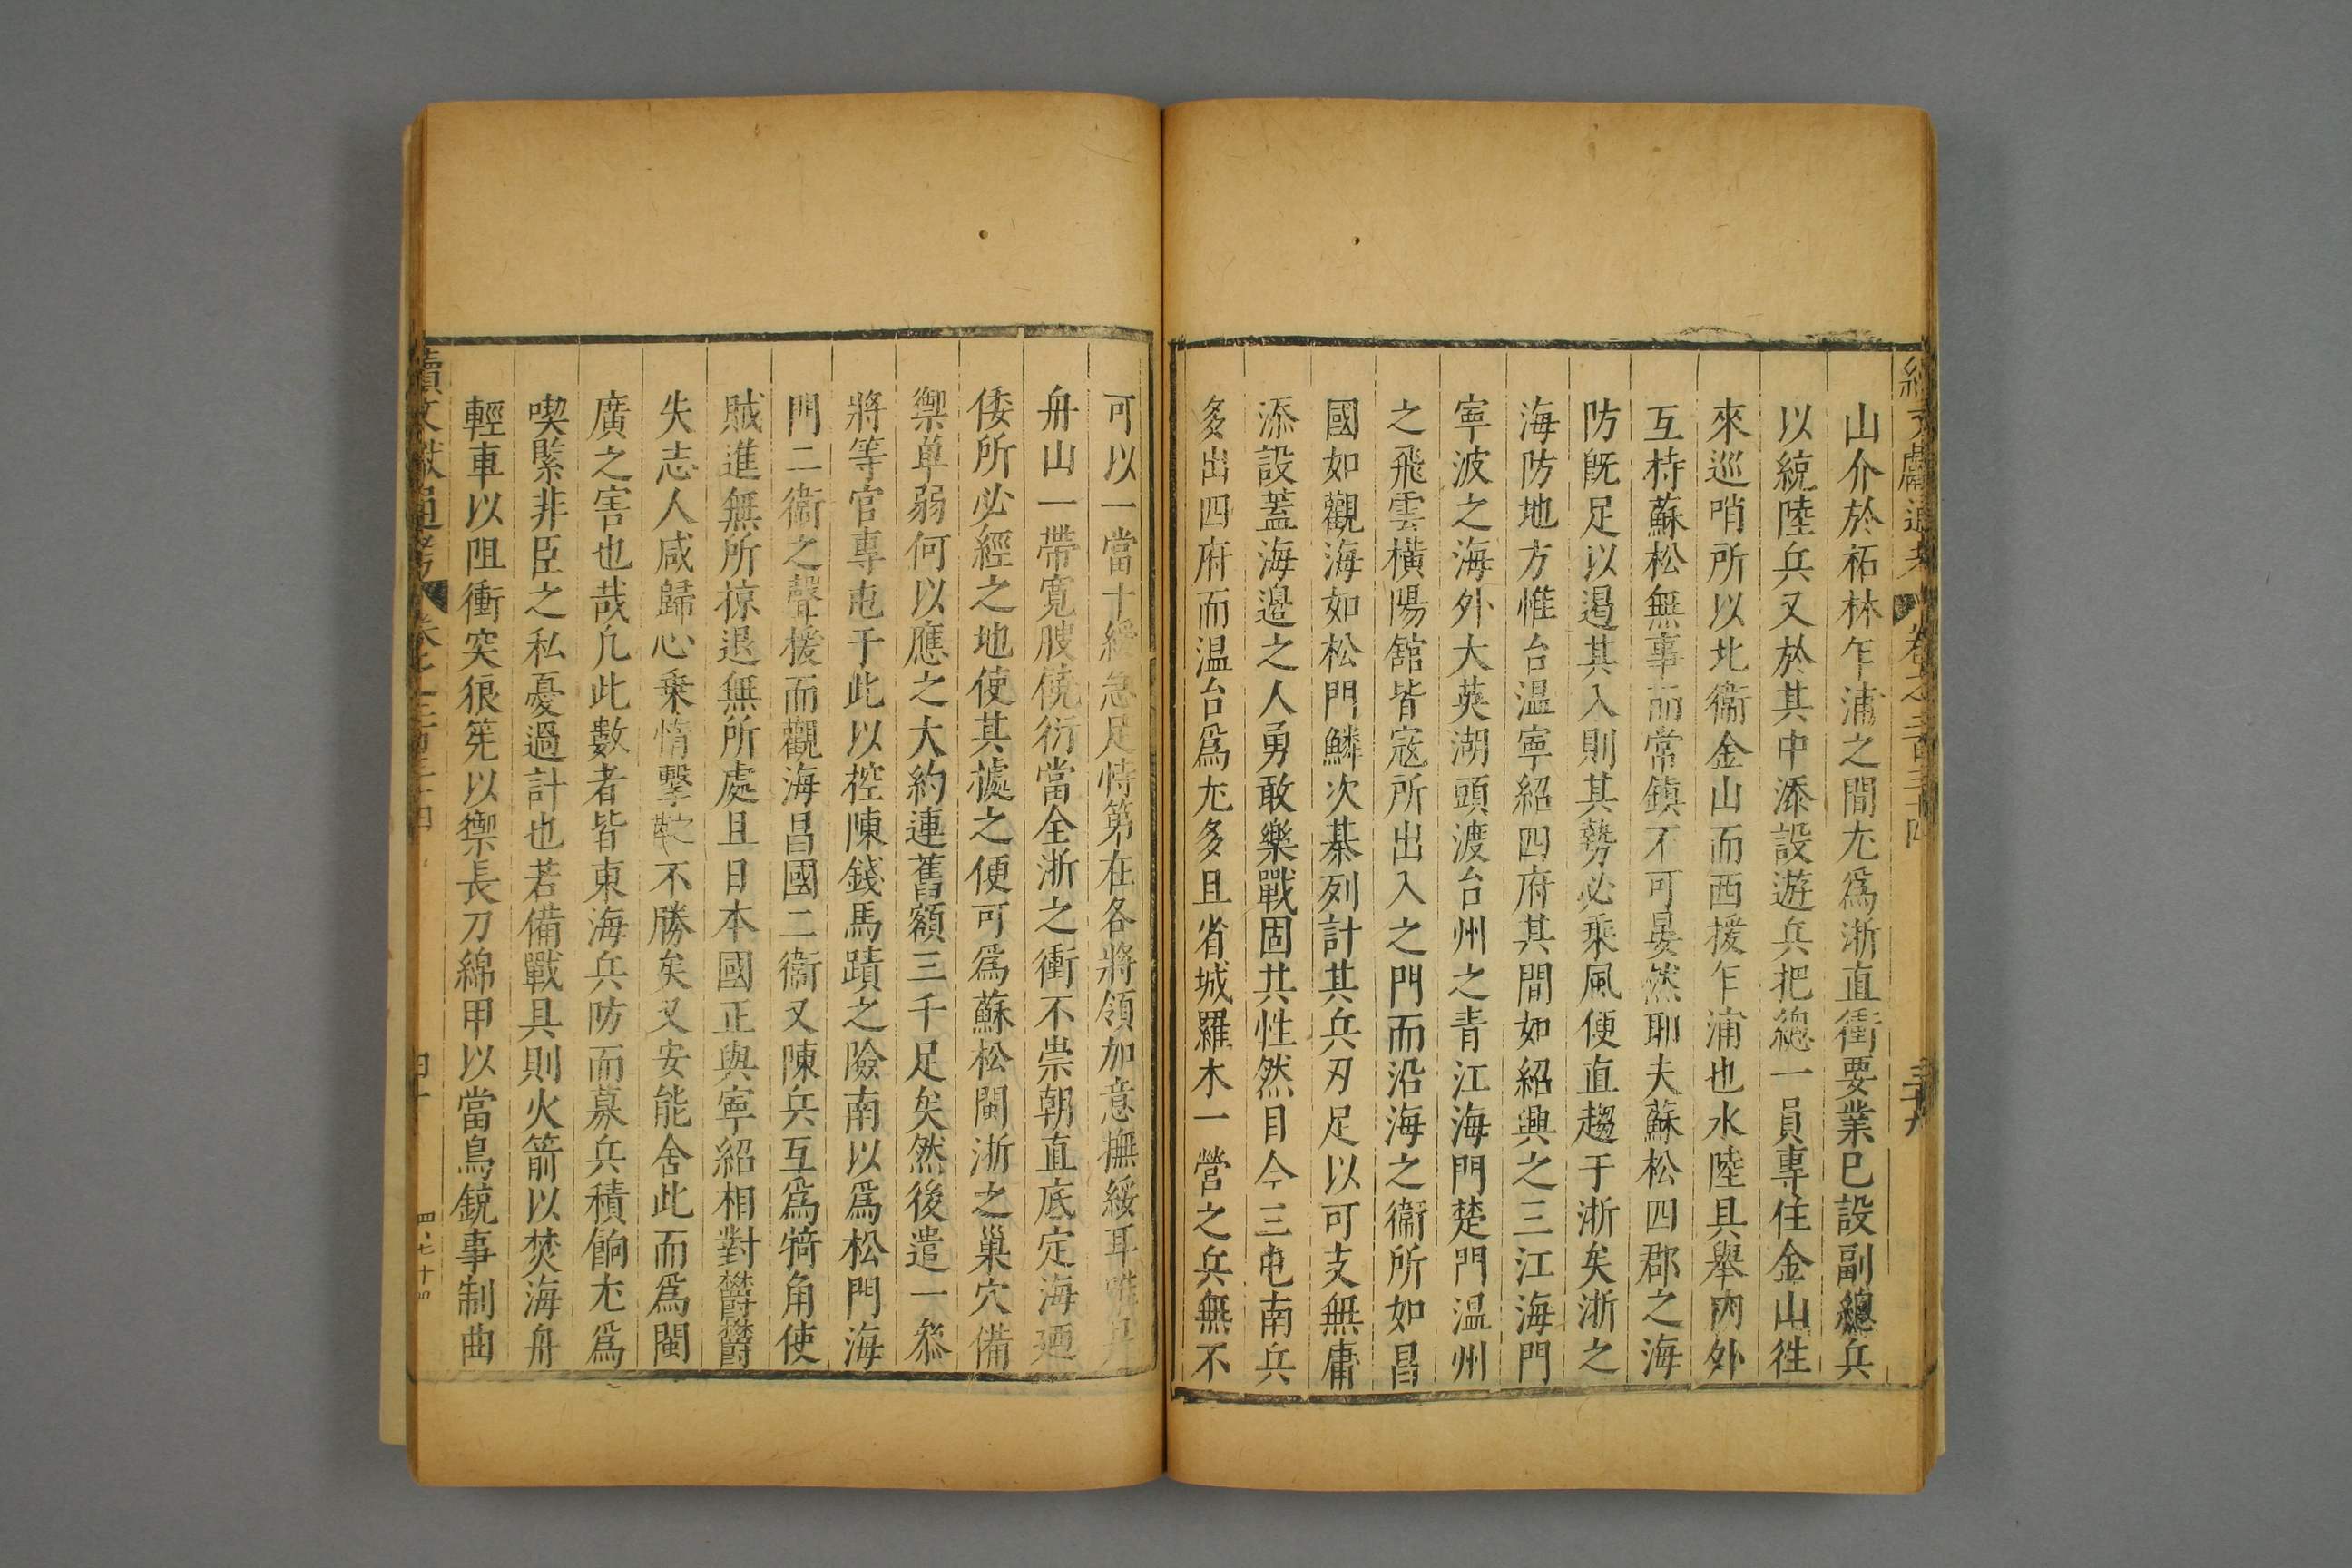 續文獻通考 卷之二百三十四 三十九
山介於祏林乍浦之間尤爲浙直衝要業已設副總兵
以統陸兵又於其中添設遊兵把總一員專住金山徃
來巡哨所以北衞金山而西援乍浦也水陸具舉內外
互持蘇松無事而常鎮不可晏然耶夫蘇松四郡之海
防旣足以遏其入則其勢必乘風便直趨于浙矣浙之
海防地方惟台温寧紹四府其間如紹興之三江海門
寧波之海外大茣湖頭渡台州之青江海門楚門温州
之飛雲橫陽舘皆寇所出入之門而沿海之衞所如昌
國如觀海如松門鱗次棊列計其兵刃足以可支無庸
添設蓋海邊之人勇敢樂戰固其性然目今三屯南兵
多出四府而温台爲尤多且省城羅木一營之兵無不
可以一當十緩急足恃第在各將領加意撫綏耳
舟山一帶寬腴饒衍當全浙之衝不崇朝直底定海迺
倭所必經之地使其㨿之便可爲蘇松閩浙之巢穴備
禦单弱何以應之大約連舊額三千足矣然後遣一叅
將等官專屯于此以控陳錢馬蹟之險南以爲松門海
門二衞之聲援而觀海昌國二衞又陳兵互爲犄角使
賊進無所掠退無所處且日本國正與寧紹相對欝欝
失志人咸歸心乗惰擊不勝矣又安能舍此而爲閩
廣之害也哉凢此數者皆東海兵防而募兵積餉尤爲
喫緊非臣之私憂過計也若備戰具則火箭以焚海舟
輕車以阻衝突狼筅以禦長刀綿甲以當鳥銃事制曲
續文獻通考 卷之二百三十四 四十